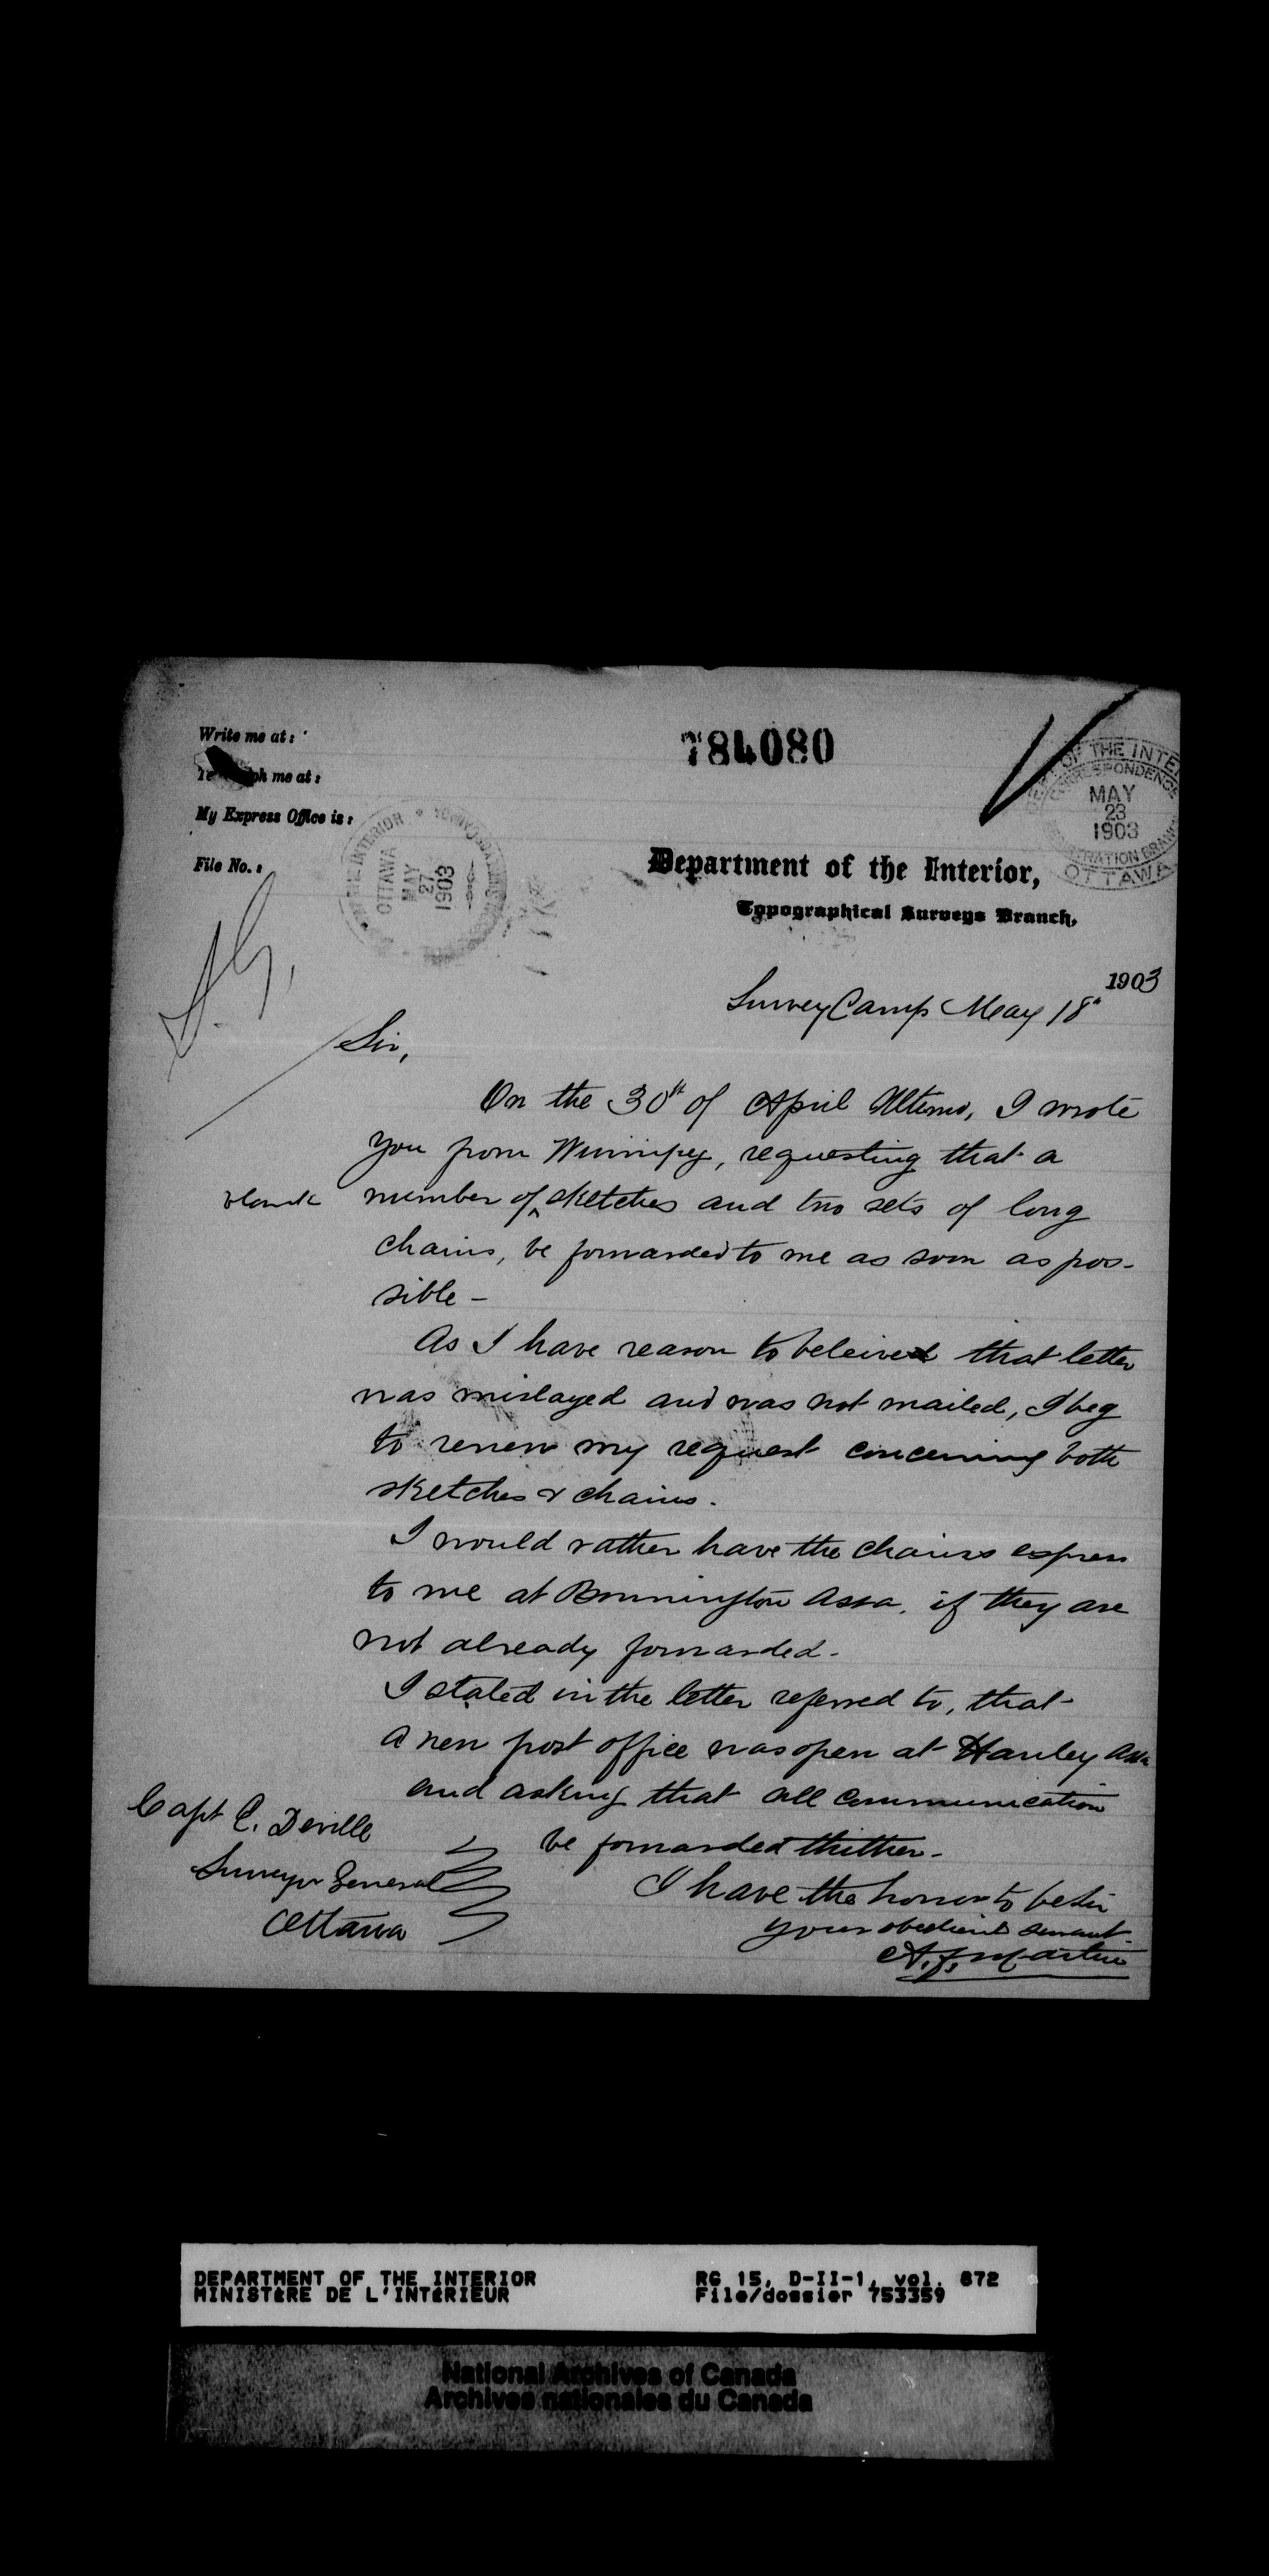 Write me at:
Telegraph me at:
My Express Office is:
File No.:
784080
DEPT OF THE INTERIOR
CORRESPONDENCE
MAY
23
1903
REGISTRATION BRANCH
OTTAWA
THE INTERIOR
OTTAWA
MAY
27
1903
Department of the Interior,
Topographical Surveys Branch,
1903
Survey Camp May 18"
Sir,
On the 30th of April Ultimo, I wrote
you from Winnipeg, requesting that a
blank number of ^ sketches and two sets of long
chains, be forwarded to me as soon as pos-
sible -
As I have reason to beleive that letter
was mislayed and was not mailed, I beg
to renew my request concerning both
sketches & chains.
I would rather have the chains express
to me at Assa, if they are
not already forwarded -
I stated in the letter referred to, that
a new post office was open at Hanley Assa
and asking that all communication
be forwarded thither -
I have the honor to be Sir
your obedient servant
A.F. Martin
Capt C. Deville
Surveyor General
Ottawa
DEPARTMENT OF THE INTERIOR
MINISTÈRE DE L'INTÉRIEUR
RG 15, D-II-1, vol. 872
File/dossier 753359
National Archives of Canada
Archives nationales du Canada